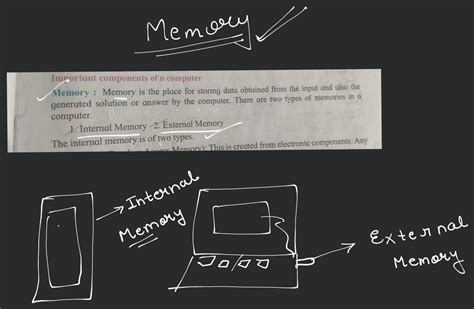 Memory
Important components of a computer
Memory : Memory is the place for storing data obtained from the input and also the
generated solution or answer by the computer. There are two types of memories in a
computer.
1. Internal Memory 2. External Memory
The internal memory is of two types.
Memory): This is created from electronic components. Any
Internal
Memory
External
Memory